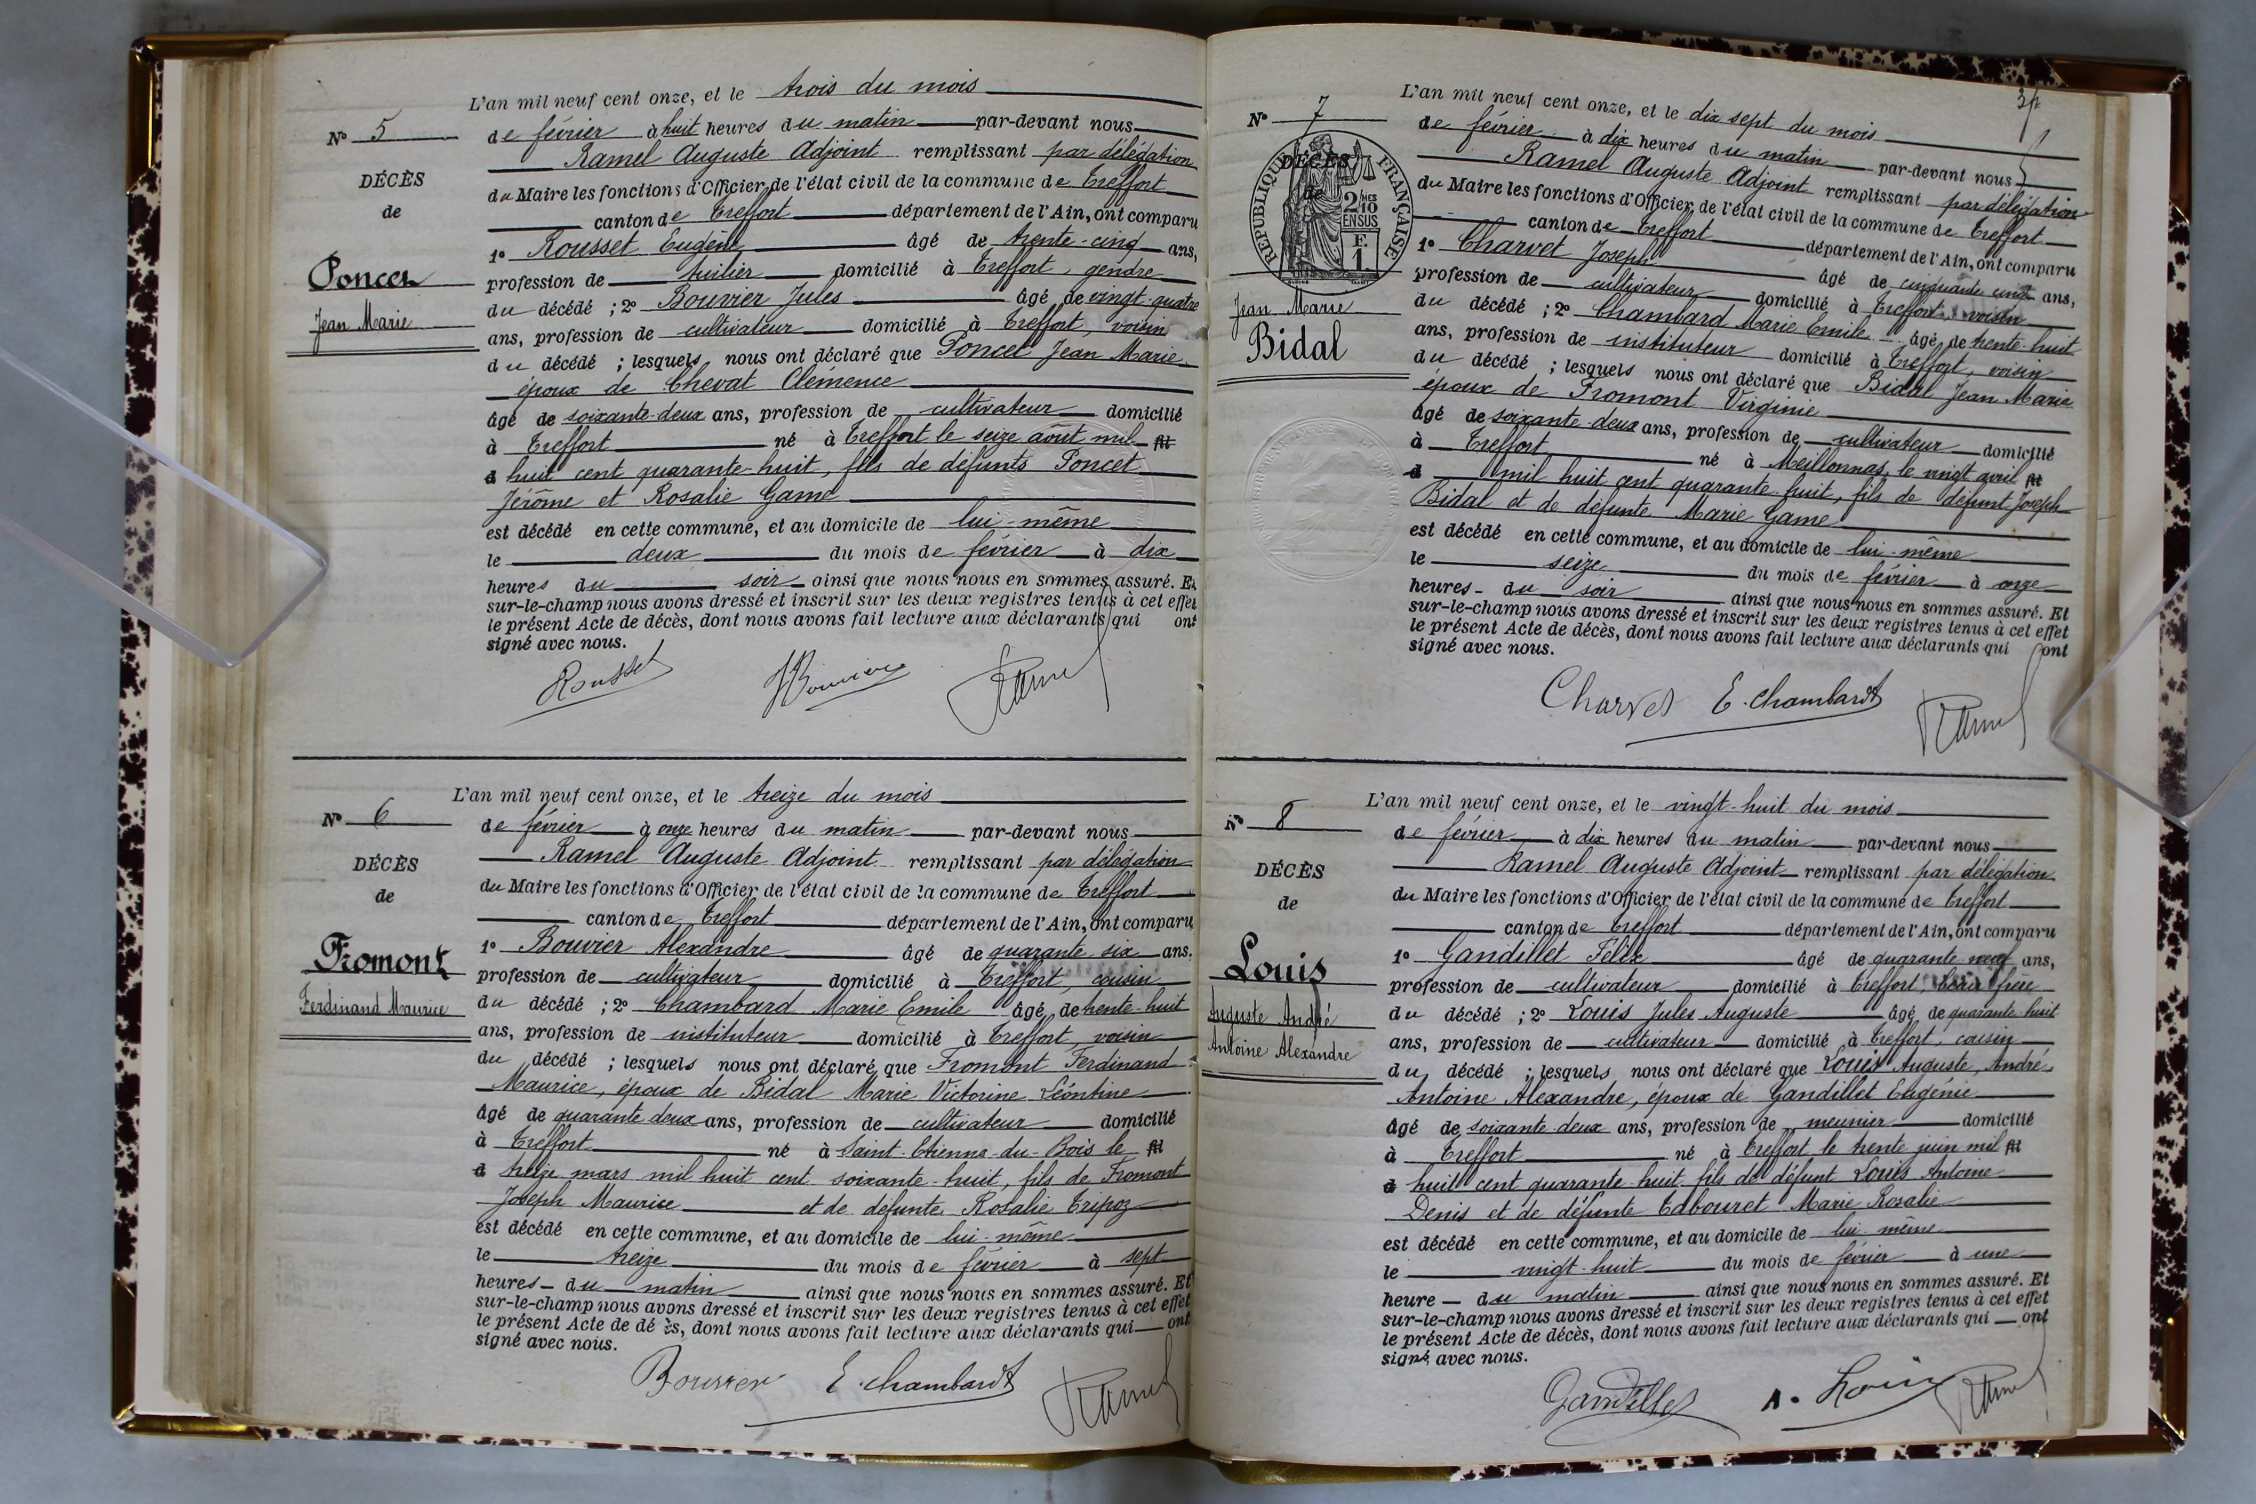 L'an mil neuf cent onze, et le trois du mois
N° 5
de février à huit heures du matin par-devant nous
Ramel Auguste Adjoint remplissant par délégation
DÉCÈS
du Maire les fonctions d'Officier de l'état civil de la commune de Treffort
de
canton de Treffort département de l'Ain, ont comparu
1° Rousset Eugène âgé de trente-cinq ans,
Poncet
profession de tuilier domicilié à Treffort, gendre
du décédé ; 2° Bouvier Jules âgé de vingt-quatre
Jean Marie
ans, profession de cultivateur domicilié à Treffort, voisin
du décédé ; lesquels nous ont déclaré que Poncet Jean Marie
époux de Chevat Clémence
âgé de soixante-deux ans, profession de cultivateur domicilié
à Treffort né à Treffort le seize août mil fil
d huit cent quarante-huit, fils de défunts Poncet
Jérôme et Rosalie Game
est décédé en cette commune, et au domicile de lui-même
le deux du mois de février à dix
heures du soir ainsi que nous nous en sommes assuré. Et
sur-le-champ nous avons dressé et inscrit sur les deux registres tenus à cet effet
le présent Acte de décès, dont nous avons fait lecture aux déclarants qui ont
signé avec nous.
Rousset Bouvier Ramel
L'an mil neuf cent onze, et le treize du mois
N° 6
de février à onze heures du matin par-devant nous
Ramel Auguste Adjoint remplissant par délégation
DÉCÈS
du Maire les fonctions d'Officier de l'état civil de la commune de Treffort
de
canton de Treffort département de l'Ain, ont comparu
1° Bouvier Alexandre âgé de quarante six ans.
Fromont
profession de cultivateur domicilié à Treffort, cousin
Ferdinand Maurice
du décédé ; 2° Chambard Marie Emile âgé de trente-huit
ans, profession de instituteur domicilié à Treffort, voisin
du décédé ; lesquels nous ont déclaré que Fromont Ferdinand
Maurice, époux de Bidal Marie Victorine Léontine
âgé de quarante deux ans, profession de cultivateur domicilié
à Treffort né à Saint-Etienne-du-Bois le fil
d treize mars mil huit cent soixante-huit, fils de Fromont
Joseph Maurice et de défunte Rosalie Tripoz
est décédé en cette commune, et au domicile de lui-même
le treize du mois de février à sept
heures du matin ainsi que nous nous en sommes assuré. Et
sur-le-champ nous avons dressé et inscrit sur les deux registres tenus à cet effet
le présent Acte de décès, dont nous avons fait lecture aux déclarants qui ont
signé avec nous.
Bouvier E. Chambard Ramel
L'an mil neuf cent onze, et le dix sept du mois
N° 7
de février à dix heures du matin par-devant nous
Ramel Auguste Adjoint remplissant par délégation
DÉCÈS
de
RÉPUBLIQUE FRANÇAISE
2/10 EN SUS
F. 1
du Maire les fonctions d'Officier de l'état civil de la commune de Treffort
canton de Treffort département de l'Ain, ont comparu
1° Charvet Joseph âgé de cinquante cinq ans,
profession de cultivateur domicilié à Treffort, voisin
Jean Marie
Bidal
du décédé ; 2° Chambard Marie Emile âgé de trente-huit
ans, profession de instituteur domicilié à Treffort, voisin
du décédé ; lesquels nous ont déclaré que Bidal Jean Marie
époux de Fromont Virginie
âgé de soixante-deux ans, profession de cultivateur domicilié
à Treffort né à Meillonnas, le vingt avril fil
d mil huit cent quarante-huit, fils de défunt Joseph
Bidal et de défunte Marie Game
est décédé en cette commune, et au domicile de lui-même
le seize du mois de février à onze
heures du soir ainsi que nous nous en sommes assuré. Et
sur-le-champ nous avons dressé et inscrit sur les deux registres tenus à cet effet
le présent Acte de décès, dont nous avons fait lecture aux déclarants qui ont
signé avec nous.
Charvet E. Chambard Ramel
L'an mil neuf cent onze, et le vingt-huit du mois
N° 8
de février à dix heures du matin par-devant nous
Ramel Auguste Adjoint remplissant par délégation
DÉCÈS
du Maire les fonctions d'Officier de l'état civil de la commune de Treffort
de
canton de Treffort département de l'Ain, ont comparu
Louis
1° Gandillet Félix âgé de quarante neuf ans,
profession de cultivateur domicilié à Treffort, beau frère
Auguste André
du décédé ; 2° Louis Jules Auguste âgé de quarante huit
Antoine Alexandre
ans, profession de cultivateur domicilié à Treffort, cousin
du décédé ; lesquels nous ont déclaré que Louis Auguste, André,
Antoine Alexandre, époux de Gandillet Eugénie
âgé de soixante-deux ans, profession de meunier domicilié
à Treffort né à Treffort le trente juin mil fil
d huit cent quarante-huit fils de défunt Louis Antoine
Denis et de défunte Tabouret Marie Rosalie
est décédé en cette commune, et au domicile de lui-même
le vingt-huit du mois de février à une
heure du matin ainsi que nous nous en sommes assuré. Et
sur-le-champ nous avons dressé et inscrit sur les deux registres tenus à cet effet
le présent Acte de décès, dont nous avons fait lecture aux déclarants qui ont
signé avec nous.
Gandillet A. Louis Ramel